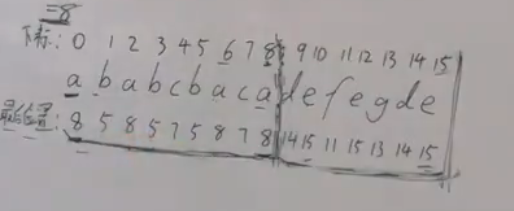 =8
下标: 0 1 2 3 4 5 6 7 8 9 10 11 12 13 14 15
a b a b c b a c a d e f e g d e
最后位置: 8 5 8 5 7 5 8 7 8 14 15 11 15 13 14 15